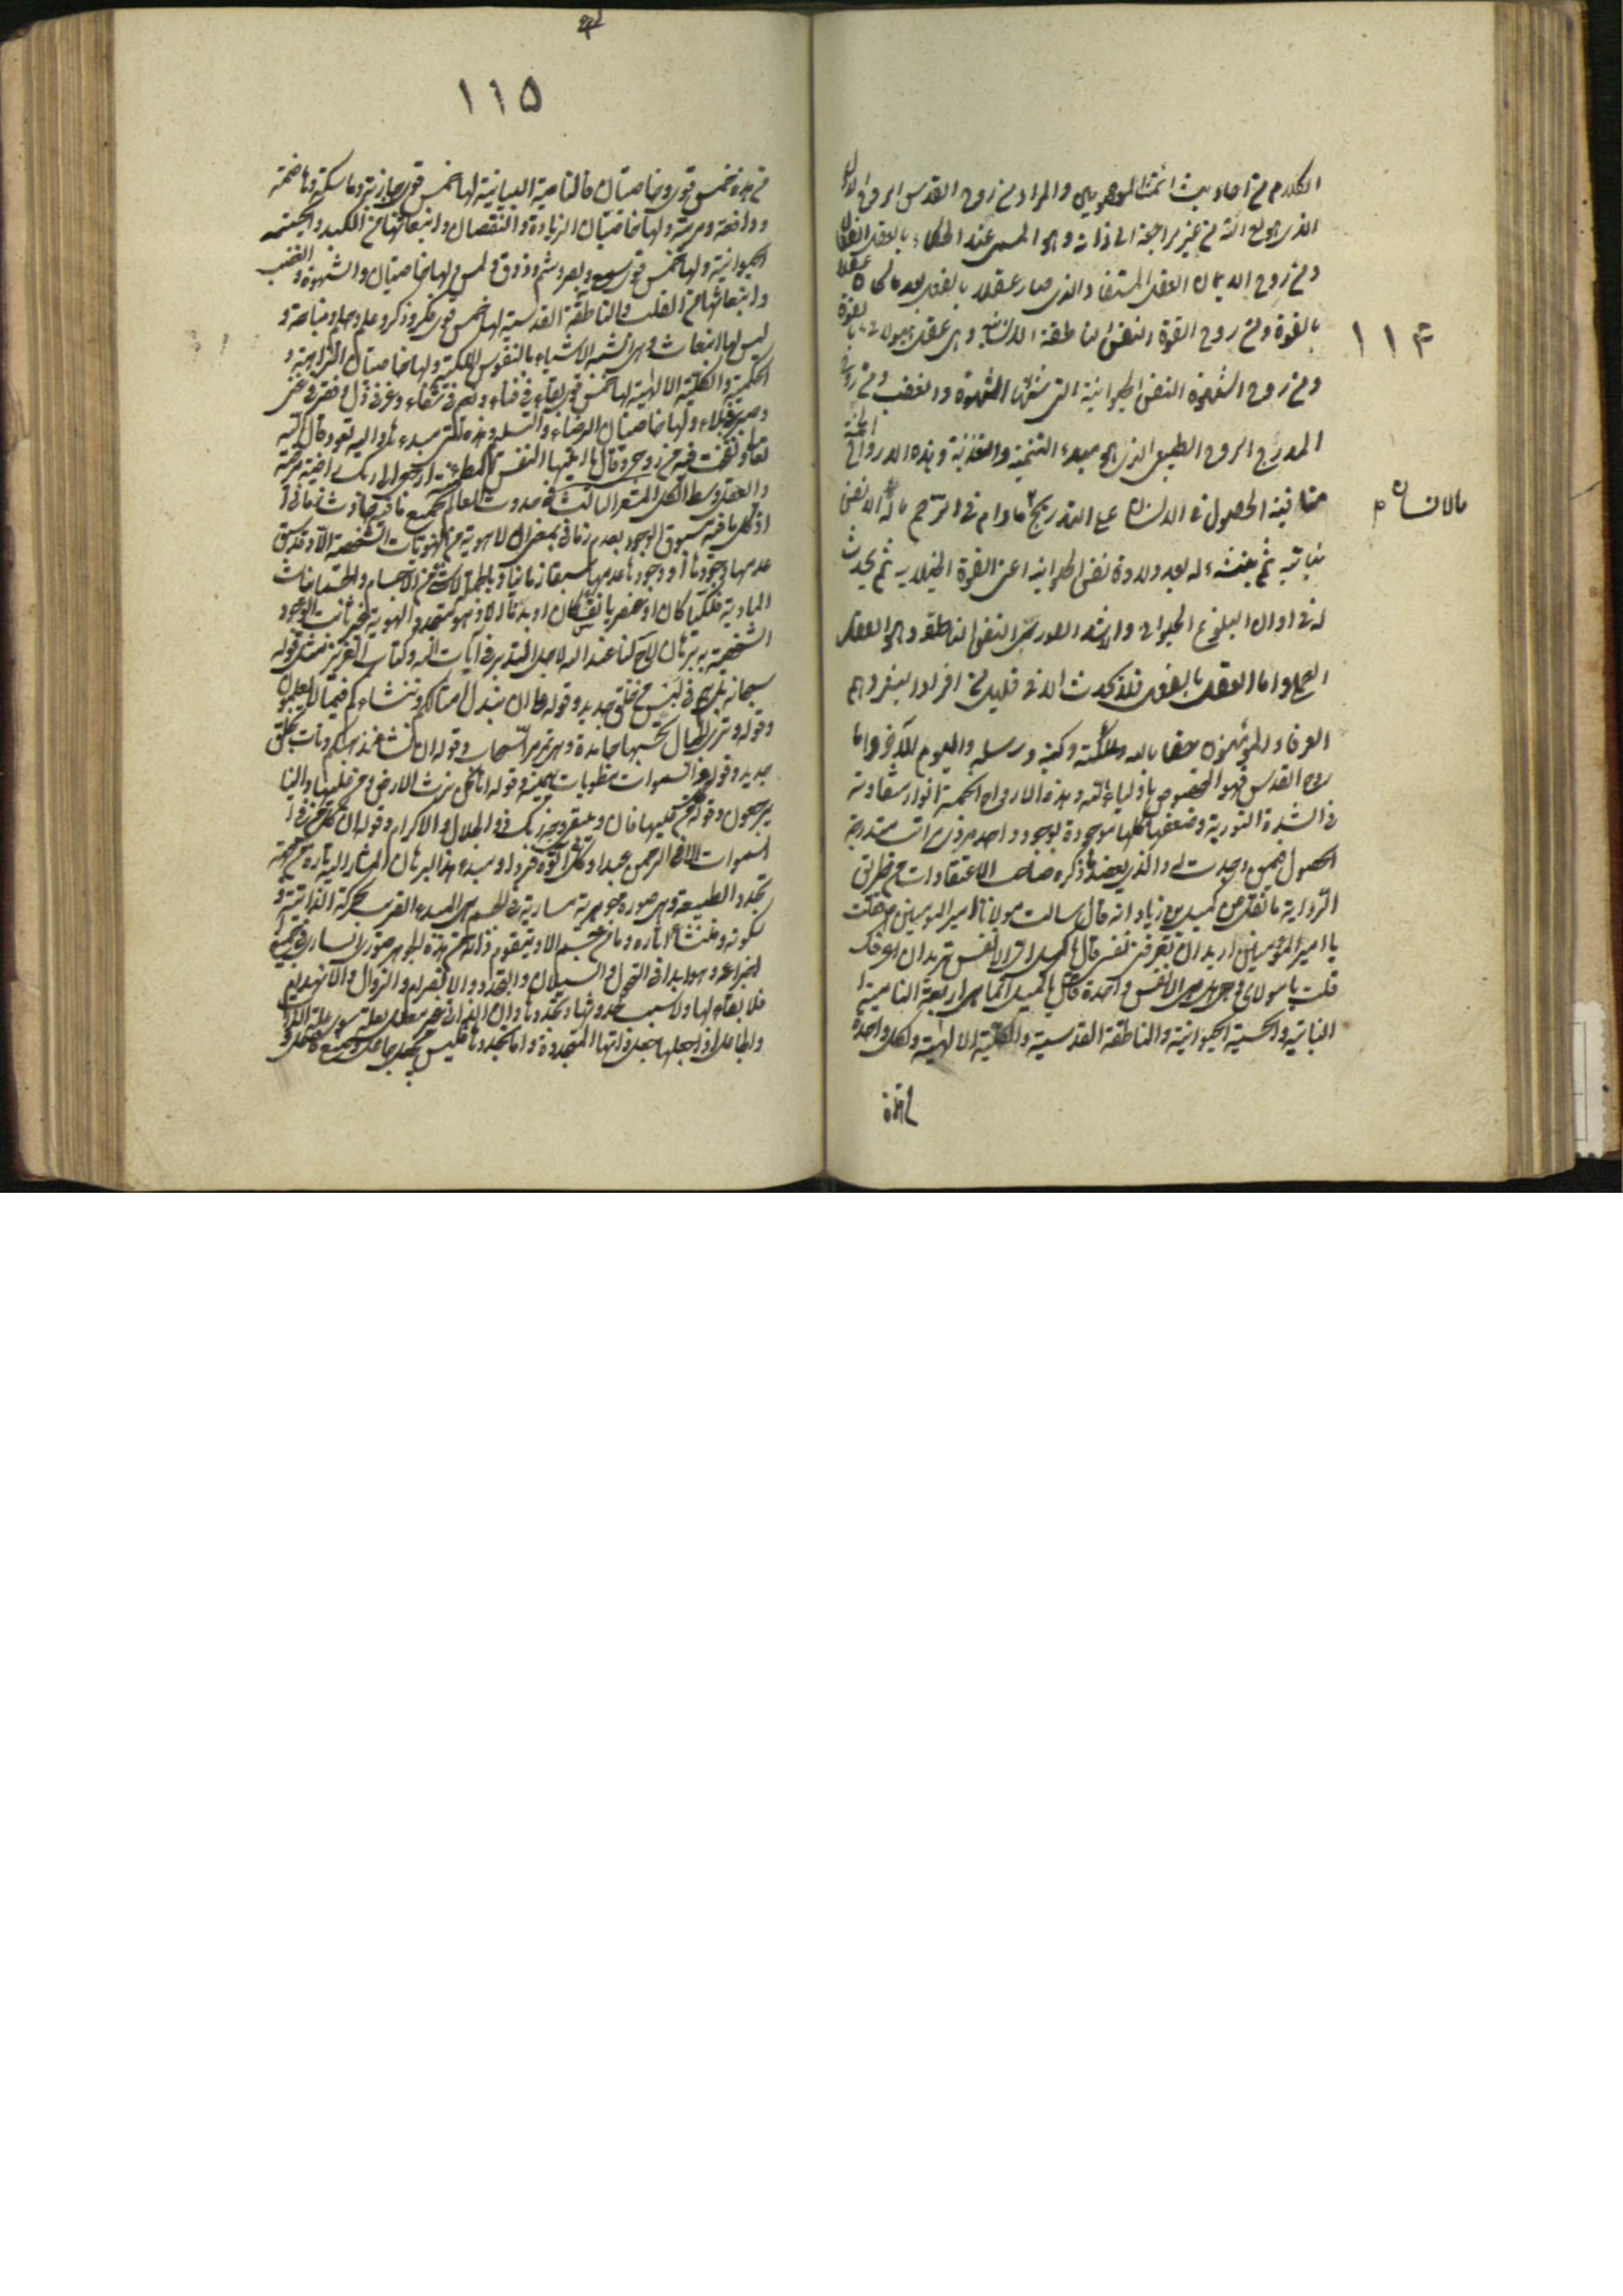 الكلام من احاديث ائمتنا المعصومين والمراد من روح القدس الروح الاول
الذى هو مع الله من غير مراجعة الى ذاته وهو المسمى عند الحكماء بالعقل الفعال
ومن روح الايمان العقل المستفاد الذى صار عقلا بالفعل بعد ما كان عقلا
١١٤
بالقوة ومن روح القوة النفس الناطقة الانسانية وهى عقل هيولانى بالقوة
ومن روح الشهوة النفس الحيوانية التى شانها الشهوة والغضب ومن روح
المدرج الروح الطبيعى الذى هو مبدء التنمية والتغذية وهذه الارواح الخمسة
متعاقبة الحصول فى الانسان على التدريج فالانسان ما دام فى الرحم ماله الا نفس
نباتية ثم ينشئ له بعد ولادة نفس الحيوانية اعنى القوة الخيالية ثم يحدث
له فى اوان البلوغ الحيوانى والاشد الصورى النفس الناطقة وهو العقل
العملى واما العقل بالفعل فلا يحدث الا فى قليل من افراد البشر وهم
العرفاء والمؤمنون حقا بالله وملائكته وكتبه ورسله واليوم الآخر واما
روح القدس فهو المخصوص باولياء الله وهذه الارواح الخمسة انوار متفاوتة
فى الشدة النورية وضعفها كلها موجودة بوجود واحد ذى مراتب متدرجة
الحصول فيمن وجدت له والذى يعضد ما ذكره صاحب الاعتقادات من طريق
الرواية ما نقل عن كميل بن زياد انه قال سالت مولانا امير المومنين ع فقلت
يا امير المؤمنين اريد ان تعرفنى نفسى قال يا كميل اى الانفس تريد ان اعرفك
قلت يا مولاى وهل هى الا نفس واحدة قال يا كميل انما هى اربعة النامية
النباتية والحسية الحيوانية والناطقة القدسية والكلية الالهية ولكل واحدة
١١٥
من هذه خمس قوى وخاصيتان فالنامية النباتية لها خمس قوى جاذبة وماسكة وهاضمة
ودافعة ومربية ولها خاصيتان الزيادة والنقصان وانبعاثها من الكبد والحسية
الحيوانية ولها خمس قوى سمع وبصر وشم وذوق ولمس ولها خاصيتان والشهوة والغضب
وانبعاثها من القلب والناطقة القدسية لها خمس قوى فكر وذكر وعلم وحلم ونباهة و
ليس لها انبعاث وهى اشبه الاشياء بالنفوس الملكية ولها خاصيتان النزاهة و
الحكمة والكلية الالهية لها خمس قوى بقاء فى فناء ونعيم فى شقاء وعز فى ذل وفقر فى غنى
وصبر فى بلاء ولها خاصيتان الرضاء والتسليم وهذه التى مبدءها واليه تعود قال الله
تعالى ونفخت فيه من روحى وقال يا ايتها النفس المطمئنة ارجعى الى ربك راضية مرضية
والعقل وسط الكل المشعر الثالث فى حدوث العالم العالم بجميع ما فيه حادث زمانى
اذ كل ما فيه مسبوق الوجود بعدم زمانى بمعنى ان لا هوية من الهويات الشخصية الا وقد سبق
عدمها وجودها او وجودها عدمها سبقا زمانيا وبالجملة لا شئ من الاجسام والجسمانيات
المادية فلكيا كان او عنصريا نفسا كان او بدنا الا وهو متجدد الهوية غير ثابت الوجود
الشخصية ببرهان لاح لنا عند الله لاجل التدبر فى آيات الله وكتاب العزيز مثل قوله
سبحانه بل هم فى لبس من خلق جديد وقوله على ان نبدل امثالكم وننشاءكم فيما لا يعلمون
وقوله وترى الجبال تحسبها جامدة وهى تمر مر السحاب وقوله ان نشاء يذهبكم ويات بخلق
جديد وقوله والسموات مطويات بيمينه وقوله انا نحن نرث الارض ومن عليها والينا
يرجعون وقوله كل من عليها فان ويبقى وجه ربك ذو الجلال والاكرام وقوله ان كل من فى
السموات
تجدد الطبيعة وهى صورة جوهرية سارية فى الجسم هى المبدء القريب لحركته الذاتية و
سكونه ومنشاء آثاره وما من جسم الا ويتقوم ذاته من هذه الجوهر الصورى السارى فى جميع
اجزاءه وهو ابدا فى التحول والسيلان والتجدد والانصرام والزوال والانهدام
فلا بقاء لها ولا سبب لحدوثها وتجددها
والجاعل اذا جعلها جعل ذاتها المتجددة واما تجددها فليس بجعل جاعل